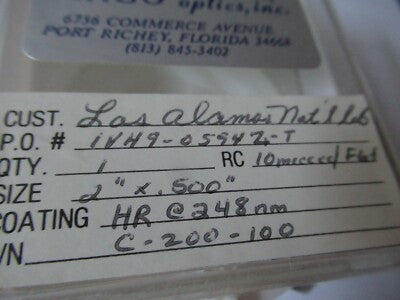 optics, inc.
6736 COMMERCE AVENUE
PORT RICHEY, FLORIDA 34668
(813) 845-3402
CUST. Los Alamos Nat'l Lab
P.O. #
QTY. 1 RC 10m cc/Flat
SIZE 2" x .500"
COATING HR @ 248nm
/N C-200-100